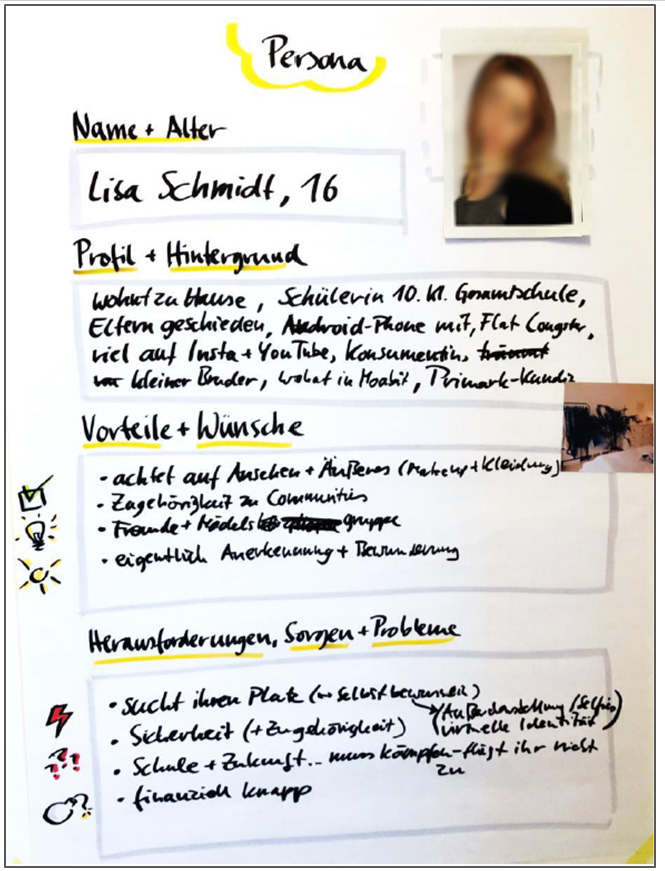 Persona
Name + Alter
Lisa Schmidt, 16
Profil + Hintergrund
wohnt zu Hause, Schülerin 10. Kl. Gesamtschule,
Eltern geschieden, Android-Phone mit, Flat Congstar,
viel auf Insta + YouTube, Konsumentin,
kleiner Bruder, wohnt in Moabit, Primark-Kundin
Vorteile + Wünsche
• achtet auf Aussehen + Äußeres (Makeup + Kleidung)
• Zugehörigkeit zu Communities
• Freunde + Mädels gruppe
• eigentlich Anerkennung + Bewunderung
Herausforderungen, Sorgen + Probleme
• sucht ihren Platz (→ Selbstbewusstsein)
→ (Außendarstellung / Selfies)
virtuelle Identität
• Sicherheit (+ Zugehörigkeit)
• Schule + Zukunft... muss kämpfen - fliegt ihr nicht
zu
• finanziell knapp